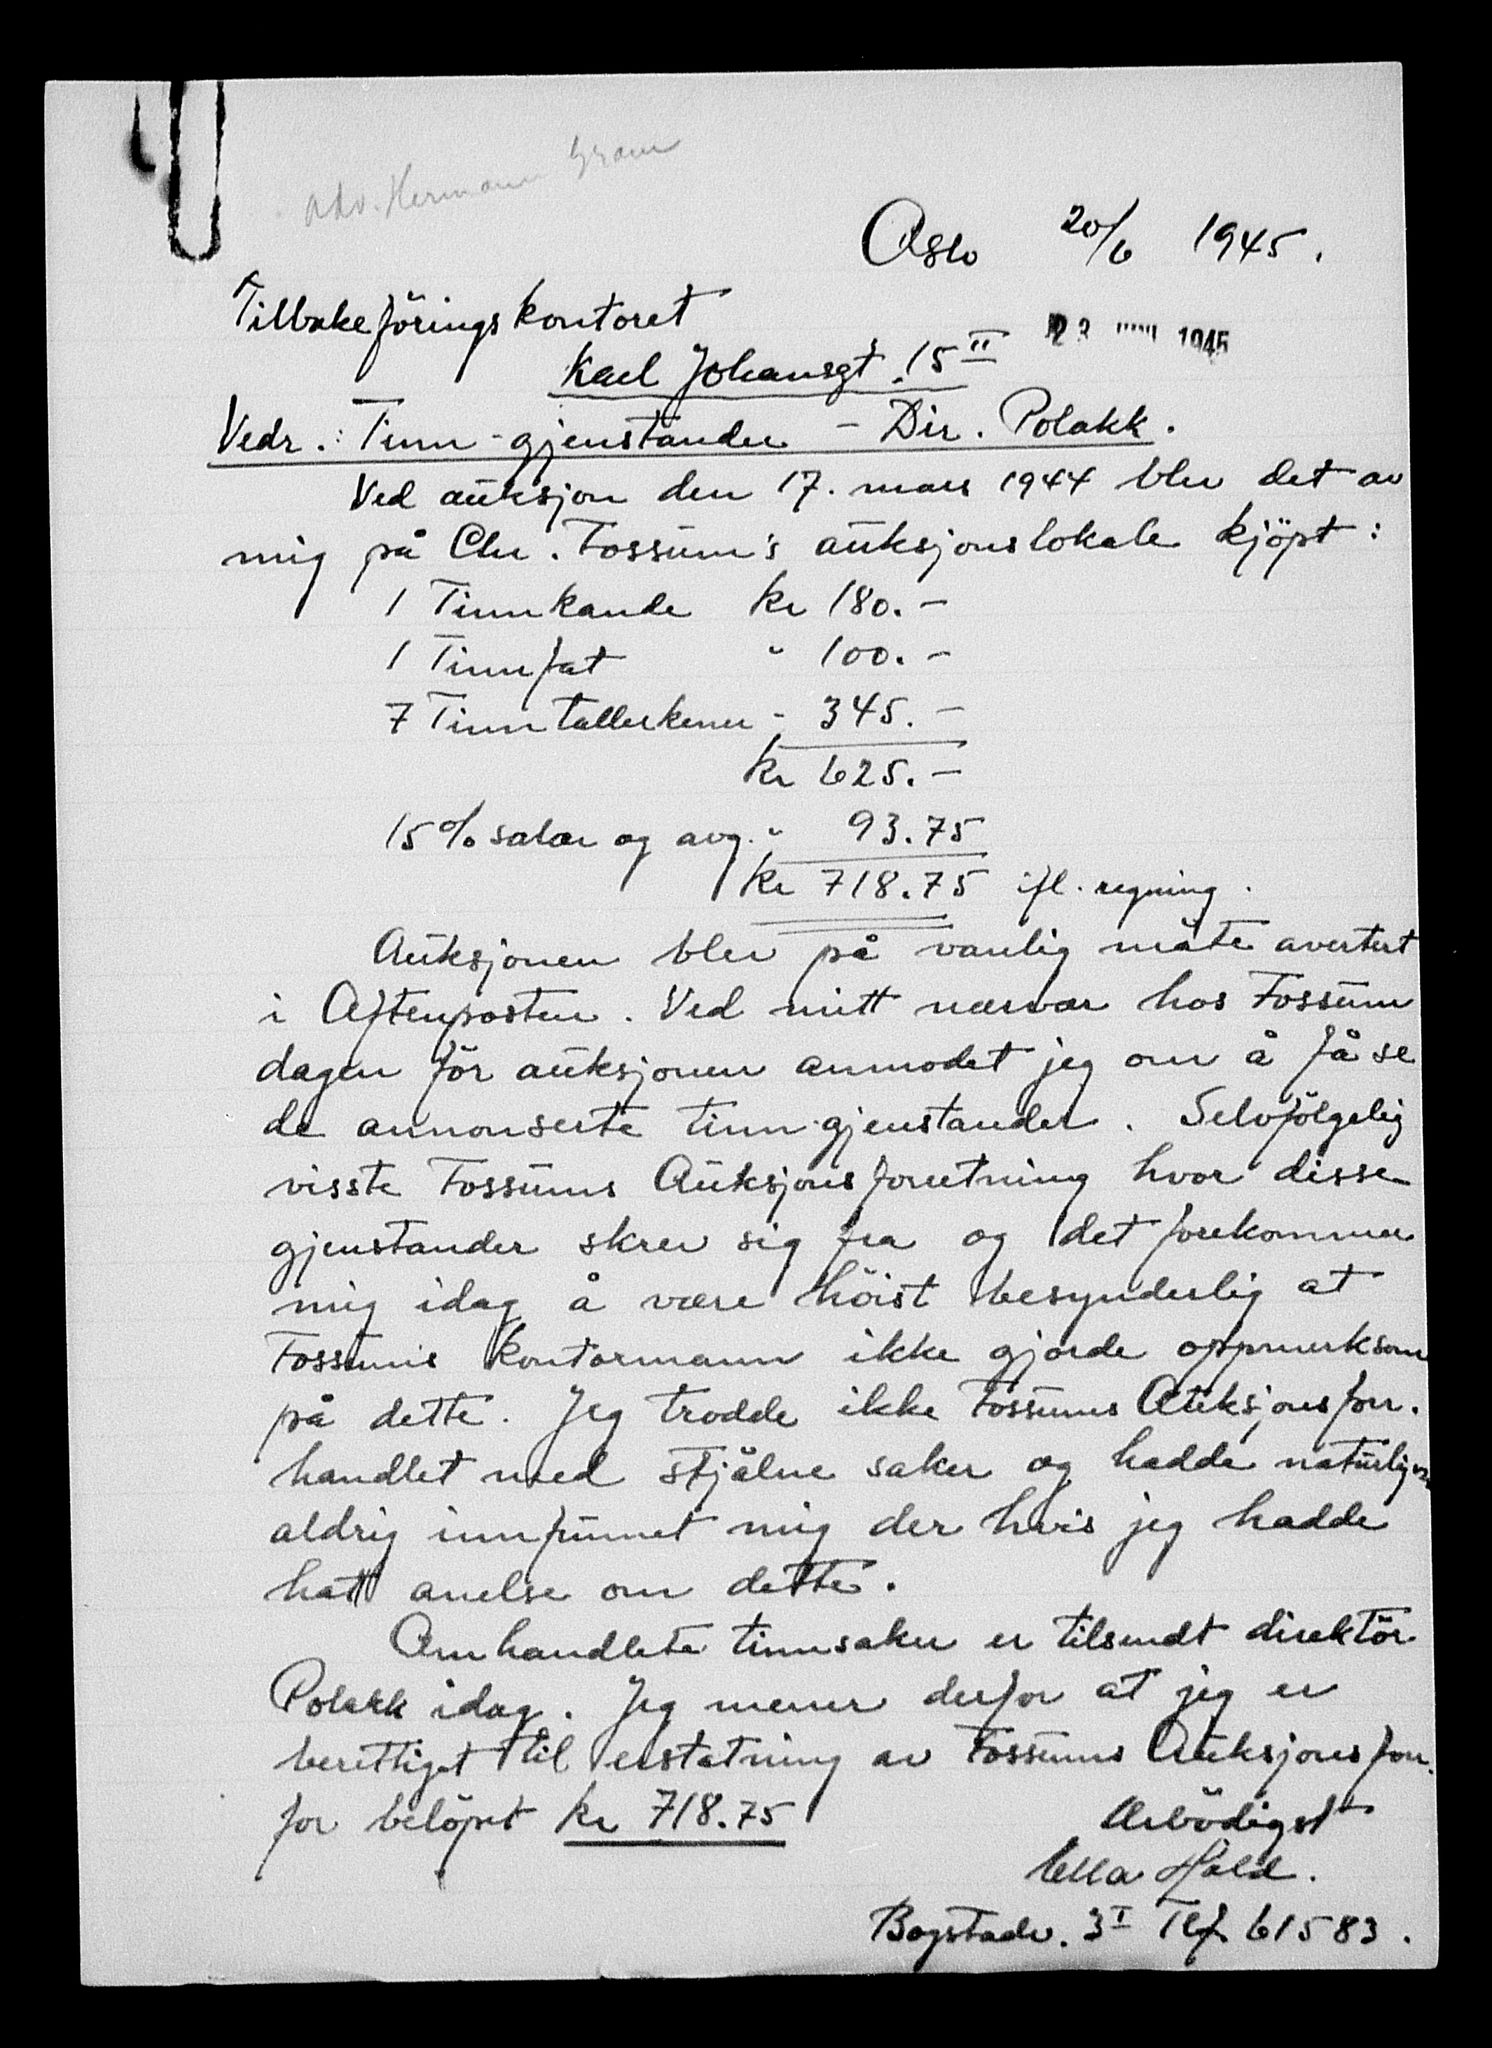 Adv. Hermann Gram
Oslo 20/6 1945.
Tilbakeföringskontoret
23 1945
Karl Johansgt. 15 II
Vedr.: Tinn-gjenstander - Dir. Polakk.
Ved auksjon den 17. mars 1944 blev det av
mig på Chr. Fossum's auksjonslokale kjöpt:
1 Tinnkande kr 180.-
1 Tinnfat " 100.-
7 Tinntallerkener " 345.-
kr 625.-
15% salær og avg. " 93.75
kr 718.75 ifl. regning.
Auksjonen blev på vanlig måte avertert
i Aftenposten. Ved mitt nærvær hos Fossum
dagen för auksjonen anmodet jeg om å få se
de annonserte tinn-gjenstander. Selvfölgelig
visste Fossums Auksjonsforretning hvor disse
gjenstander skrev sig fra og det forekommer
mig idag å være höist besynderlig at
Fossums kontormann ikke gjorde oppmerksom
på dette. Jeg trodde ikke Fossums Auksjonsforr.
handlet med stjålne saker og hadde naturligvis
aldrig innfunnet mig der hvis jeg hadde
hatt anelse om dette.
Omhandlete tinnsaker er tilsendt direktör
Polakk idag. Jeg mener derfor at jeg er
berettiget til erstatning av Fossums Auksjonsforr.
for belöpet kr 718.75
Ærbödigst
Ella Hald.
Bogstadv. 3 I Tlf. 61583.